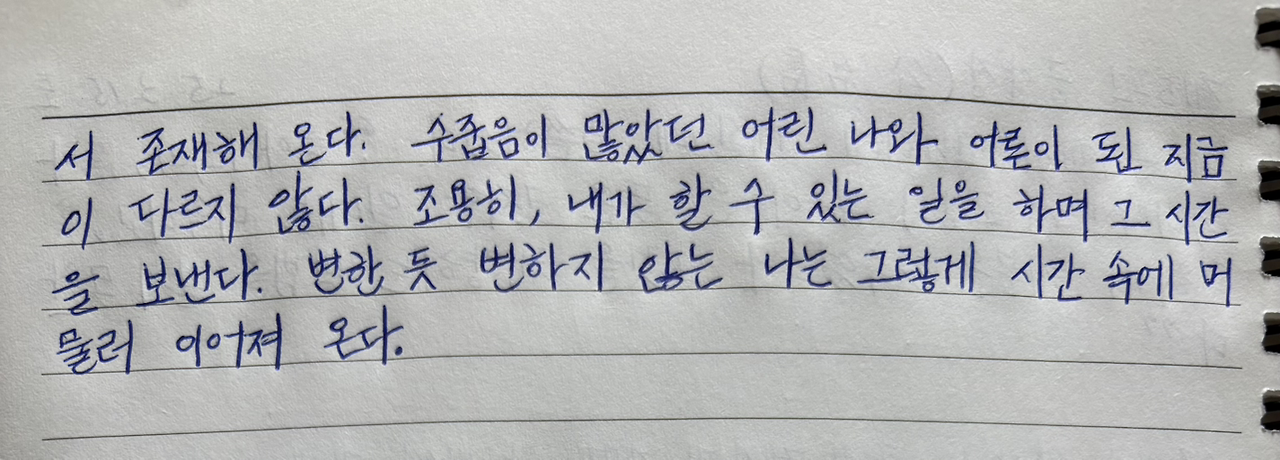 서 존재해 온다. 수줍음이 많았던 어린 나와 어른이 된 지금
이 다르지 않다. 조용히, 내가 할 수 있는 일을 하며 그 시간
을 보낸다. 변한 듯 변하지 않는 나는 그렇게 시간 속에 머
물러 이어져 온다.